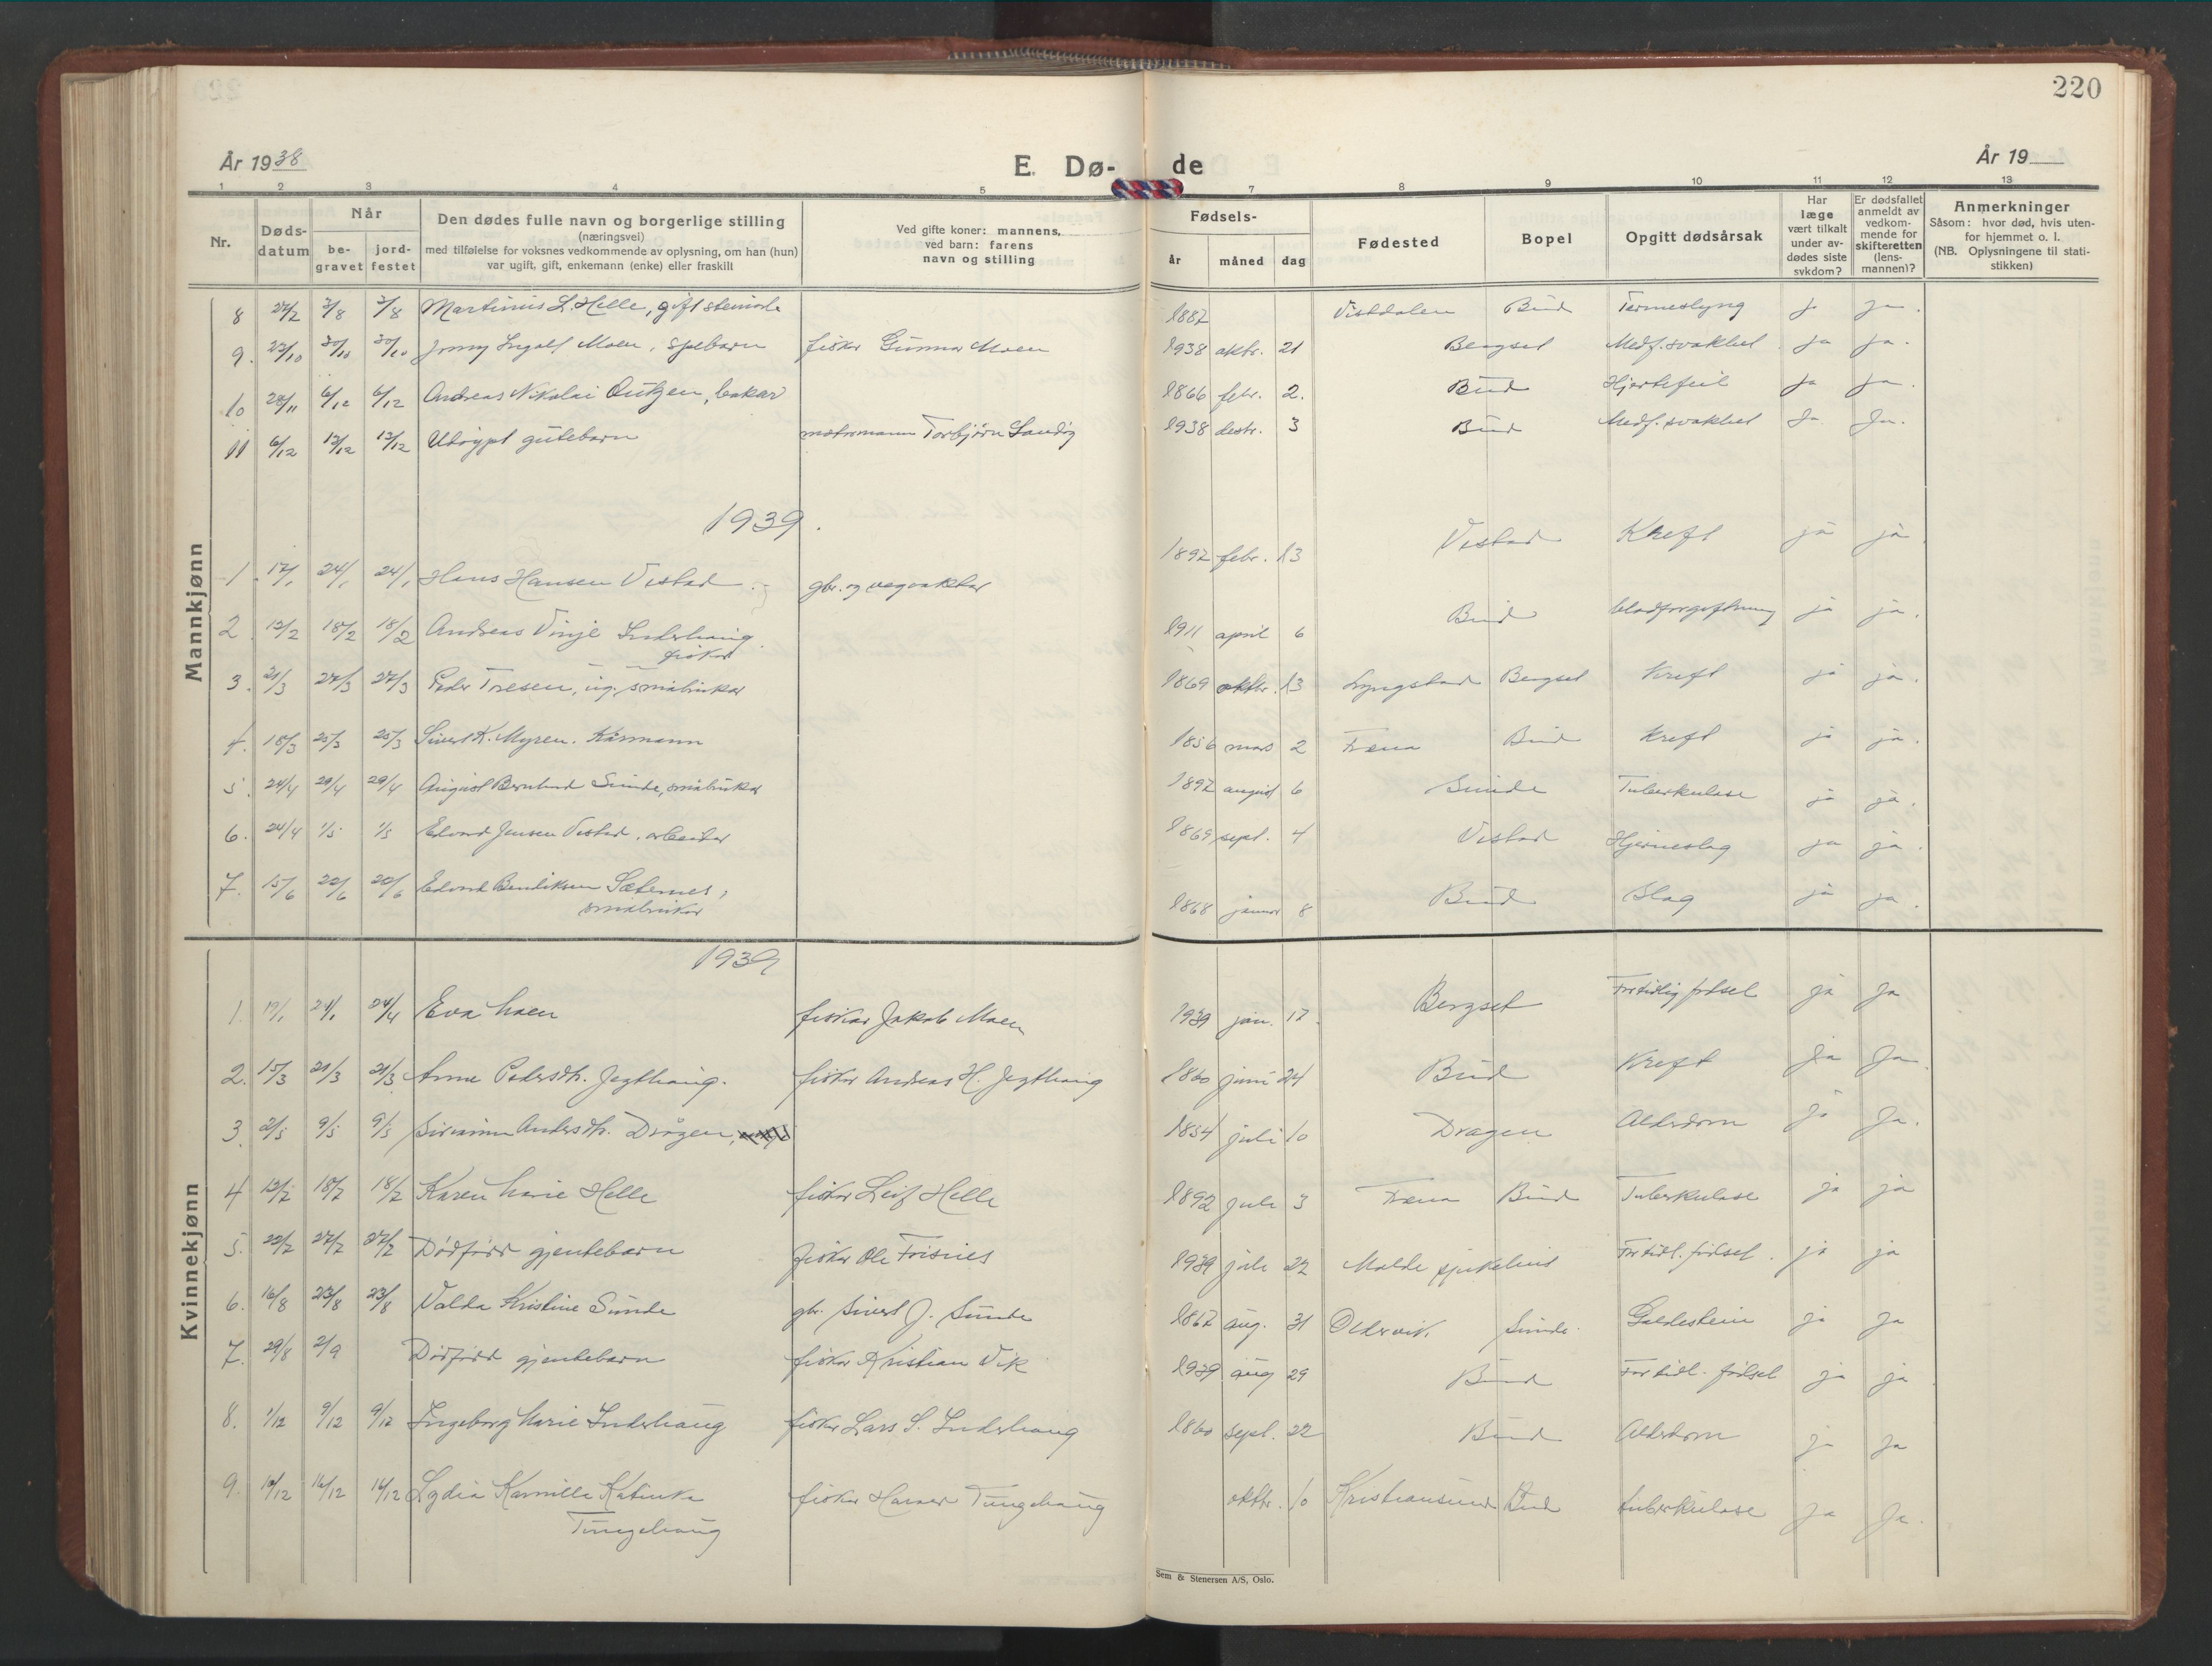 220
År 1938
E. Dø- de
År 19
1 2 3 4 5 7 8 9 10 11 12 13
Nr.
Døds-
datum
Når
be-
gravet
jord-
festet
Den dødes fulle navn og borgerlige stilling
(næringsvei)
med tilføielse for voksnes vedkommende av oplysning, om han (hun)
var ugift, gift, enkemann (enke) eller fraskilt
Ved gifte koner: mannens,
ved barn: farens
navn og stilling
Fødsels-
år måned dag
Fødested
Bopel
Opgitt dødsårsak
Har
læge
vært tilkalt
under av-
dødes siste
sykdom?
Er dødsfallet
anmeldt av
vedkom-
mende for
skifteretten
(lens-
mannen)?
Anmerkninger
Såsom: hvor død, hvis uten-
for hjemmet o. l.
(NB. Oplysningene til stati-
stikken)
Mannkjønn
8 27/2 3/8 3/8 Martinus L. Helle, gift 1887 Vistdalen Bud ja ja.
9. 23/10 30/10 30/10 Jonny Ingolf Moen, spebarn fisker Gunnar Moen 1938 oktbr. 21 Bergset Medf. svakhet ja ja.
10 28/11 6/12 6/12 Andreas Nikolai bakar 1866 febr. 2. Bud Hjertefeil ja ja.
11 6/12 13/12 13/12 Udøypt gutebarn motormann Torbjørn Sandøy 1938 desbr. 3 Bud Medf. svakhet Ja Ja.
1939.
1. 17/1 24/1 24/1 Hans Hansen Vestad gbr. og vegvaktar 1892 febr. 13 Vestad Kreft ja ja
2. 12/2 18/2 18/2 Andreas Vinje Inderhaug
fisker 1911 april 6 Bud blodforgiftning ja ja.
3. 21/3 27/3 27/3 Peder Tresen, ug. småbruker 1869 oktbr. 13 Lyngstad Bergset Kreft ja ja.
4. 18/3 25/3 25/3 Sivert K. Myren. Kårmann 1856 mars 2 Fræna Bud Kreft ja ja.
5. 24/4 29/4 29/4 August Bernhard Sunde, småbruker 1892 august 6 Sunde Tuberkulose ja ja.
6. 24/4 1/5 1/5 Edvard Jensen Vestad. arbeidar 1869 sept. 4 Vestad Hjerneslag ja ja.
7. 15/6 22/6 22/6 Edvard Bendiksen Sæternes,
småbruker 1868 januar 8 Bud Slag ja ja.
Kvinnekjønn
1939
1. 19/1 24/1 24/4 Eva Moen fisker Jakob Moen 1939 jan. 17. Bergset For tidlig fødsel ja Ja
2. 15/3 21/3 21/3 Anne Pedersdtr. Jegthaug. fisker Andreas H. Jegthaug 1860 juni 24 Bud Kreft Ja Ja
3. 2/5 9/5 9/5 Andersdtr. Drågen, 1854 juli 10 Dragen Alderdom ja Ja.
4 12/7 18/7 18/7 Karen Marie Helle fisker Leif Helle 1892 juli 3 Fræna Bud Tuberkulose ja ja
5. 22/7 27/7 27/7 Dødfødd gjentebarn fisker Ole Frisnes 1939 juli 22 Molde sjukehus For tidl. fødsel. ja ja
6. 16/8 23/8 23/8 Valda Kristine Sunde gbr. Sivert J. Sunde 1867 aug. 31 Oldervik. Sunde. Galdestein ja ja
7. 29/8 2/9 Dødfødd gjentebarn fisker Kristian Vik 1939 aug 29 Bud For tidl. fødsel ja ja
8. 1/12 9/12 9/12 Ingeborg Marie Inderhaug fisker Lars S. Inderhaug 1860 sept. 22 Bud Alderdom ja ja
9. 10/12 16/12 16/12 Lydia Kamilla Katinka
Tungehaug fisker Tungehaug oktbr. 10 Kristiansund Bud tuberkulose Ja Ja.
Sem & Stenersen A/S, Oslo.